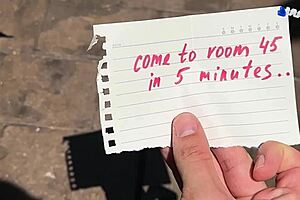 come to room 45
in 5 minutes..